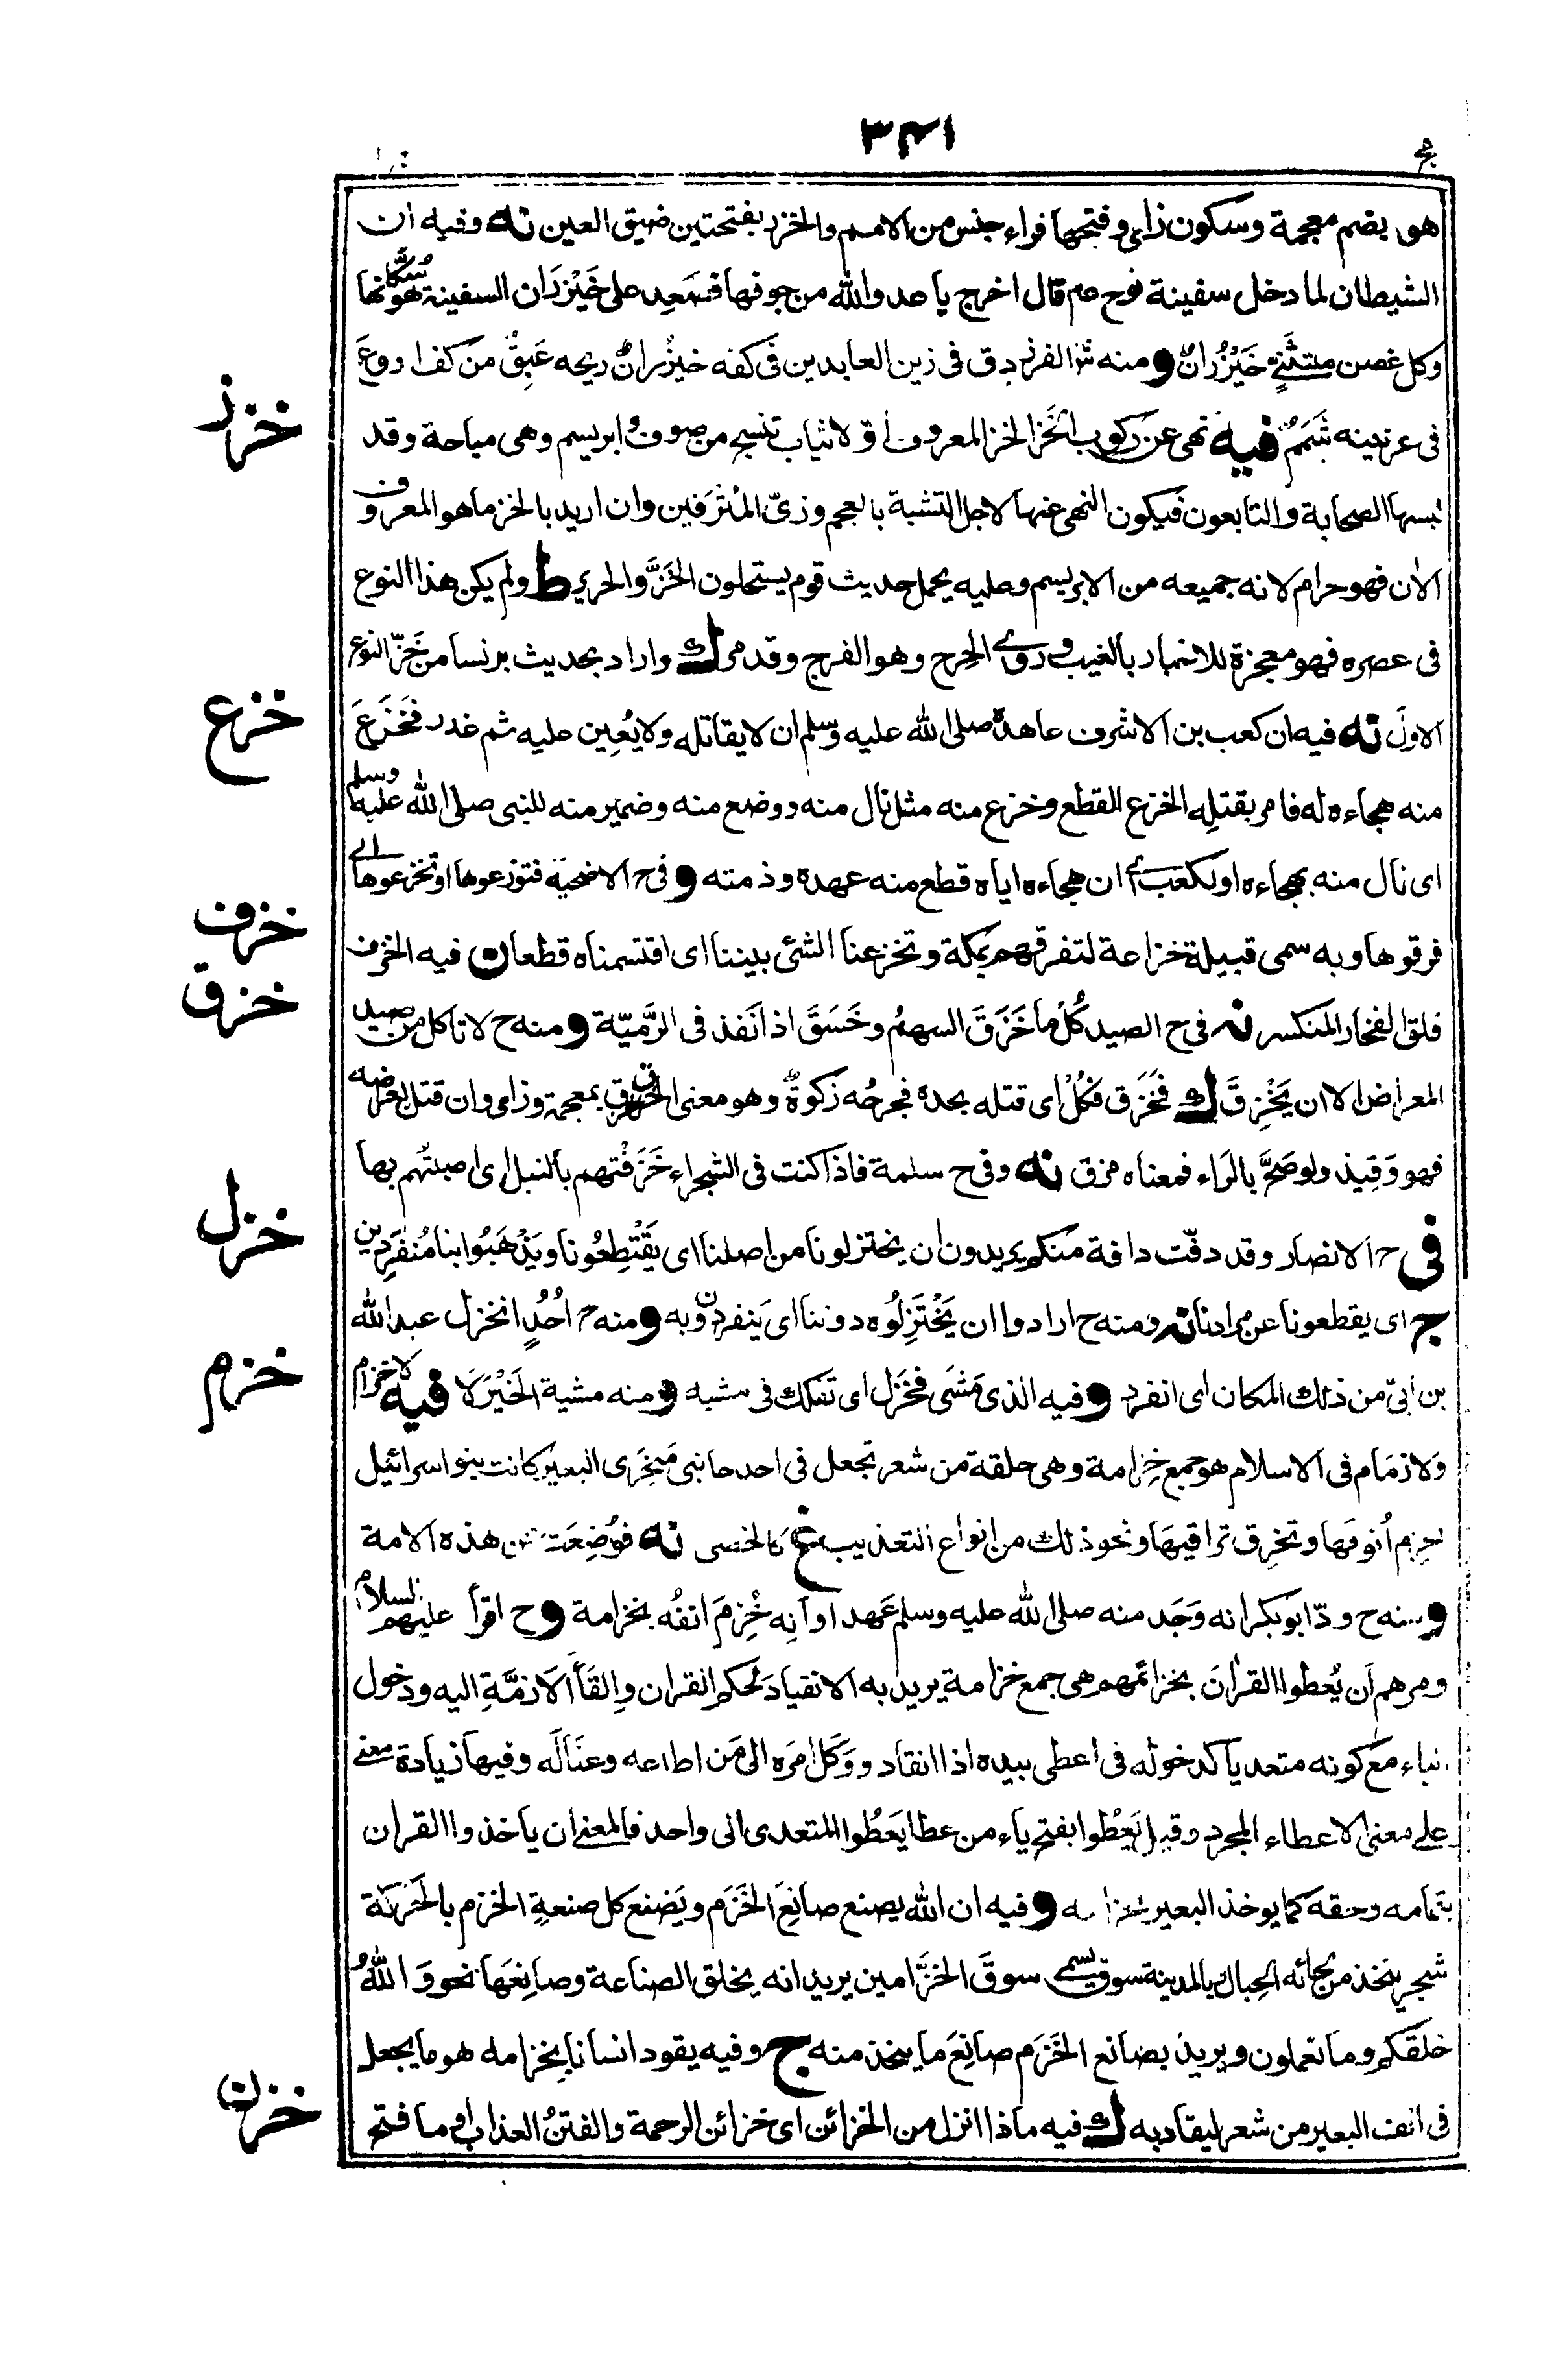 ٣٤١
هو بضم معجمة وسكون زاى وفتحها فراء جنس من الامم والخزر بفتحتين ضيق العين نه وفيه ان
الشيطان لما دخل سفينة نوح عم قال اخرج يا عدو الله من جوفها فصعد على خَيْزُرَان السفينة هو سُكّانها
وكل غصن متثنٍّ خَيْزُرانٌ و منه شعر الفرزدق فى زين العابدين فى كفه خيزرانٌ ريحه عَبِقٌ من كف اروعَ
خزز
فى عرنينه شَمَمٌ فيه نهى عن ركوب الخَزّ الخز المعروف اوّلا ثياب تنسج من صوف وابريسم وهى مباحة وقد
لبسها الصحابة والتابعون فيكون النهى عنها لاجل التشبه بالعجم وزىّ المُتْرَفين وان اريد بالخز ما هو المعروف
الان فهو حرام لانه جميعه من الابريسم وعليه يحمل حديث قوم يستحلون الخَزَّ والحرير ط ولم يكن هذا النوع
فى عصره فهو معجزة للاخبار بالغيب وروى الحِرح وهو الفرج وقد مر ك واراد بحديث برنسا من خَزّ النوع
خزع
الاولَ نه فيه ان كعب بن الاشرف عاهده صلى الله عليه وسلم ان لا يقاتله ولا يُعِين عليه ثم غدر فخَزَعَ
منه هجاءه له فامر بقتلِه الخزع القطع وخزع منه مثل نال منه ووضع منه وضمير منه للنبى صلى الله عليه وسلم
اى نال منه بهجاءه او لكعب اى ان هجاءه اياه قطع منه عهده وذمته و فى ح الاضحية فتوزعوها او تخزعوها اى
خزف
فرقوها وبه سمى قبيلة خزاعة لتفرقهم بمكة وتخزعنا الشئ بيننا اى اقتسمناه قطعا ن فيه الخزف
خزق
فلق الفخار المنكسر نه فى ح الصيد كُلْ ما خَزَقَ السهمُ وخَسَقَ اذا نَفذ فى الرَّمِيّة و منه ح لا تاكل من صيد
المعراض الا ان يَخْزِقَ ك فخَزَق فكُلْ اى قتله بحده فجرحُه زكوةٌ وهو معنى الخزق بمعجمة وزاى وان قتل بعرضه
فهو وَقِيذ ولو صَحَّ بالراء فمعناه مزق نه وفى ح سلمة فاذا كنت فى الشجراء خَزَقْتهم بالنبل اى اصبتُهم بها
خزل
فى ح الانصار وقد دفّت دافة منكم يريدون ان يختزلونا من اصلنا اى يَقْتَطِعُونا ويَذْهَبُوا بنا مُنفَرِدين
ج اى يقطعونا عن مرادنا نه ومنه ح ارادوا ان يَخْتَزِلُوه دوننا اى يَنفردون به و منه ح اُحُدٍ انخزل عبد الله
خزم
بن ابىّ من ذلك المكان اى انفرد و فيه الذى مَشَى فخَزَل اى تفكك فى مشيه و منه مشية الخَيْزَلَا فيه لا خزام
ولا زمَام فى الاسلام هو جمع خِزامة وهى حلقة من شعر تجعل فى احد جانبى مَنْخِرَى البعير كانت بنو اسرائيل
تخزم اُنوفَها وتخرق تراقيهَا ونحو ذلك من انواع التعذيب غ كالخصى نه فوُضِعَتْ عن هذه الامة
و منه ح ودّ ابو بكر انه وَجَد منه صلى الله عليه وسلم عَهدا وانه خُزِمَ انفُه بخزامة و ح اقرأ عليهم السلام
ومرهم اَن يُعطوا القرانَ بخزائمهم هى جمع خزامة يريد به الانقيادَ لحكم القران وإلقَاأَ الازمَّةِ اليه ودخول
الباء مَع كونه متعديا كدخوله فى اعطى بيده اذا انقاد ووَكَلَ امرَه الى مَن اطاعه وعنَا لَه وفيها زيادة معنى
على معنى الاعطاء المجرد وقيل يَعْطُوا بفتح ياء من عطا يَعطُوا المتعدى الى واحد فالمعنى ان ياخذوا القران
بتمامه وحقه كما يوخذ البعير بخزامه و فيه ان الله يصنع صانِعَ الخَزَم ويَصْنع كل صنعةِ الخزم بالحَرَكَة
شجر يتخذ من لحائه الحِبال بالمدينة سوق يسمى سوقَ الخزَّامين يريد انه يخلق الصناعة وصانِعَهَا نحو وَ اللهُ
خلَقكم وما تعملون ويريد بصانع الخَزَم صانِعَ ما يتخذ منه ج وفيه يقود انسانا بِخزامه هو ما يجعل
خزن
فى انف البعير من شعر ليقاد به ك فيه ماذا انزل من الخزائن اى خزائن الرحمة والفتنُ العذاب او ما فتح